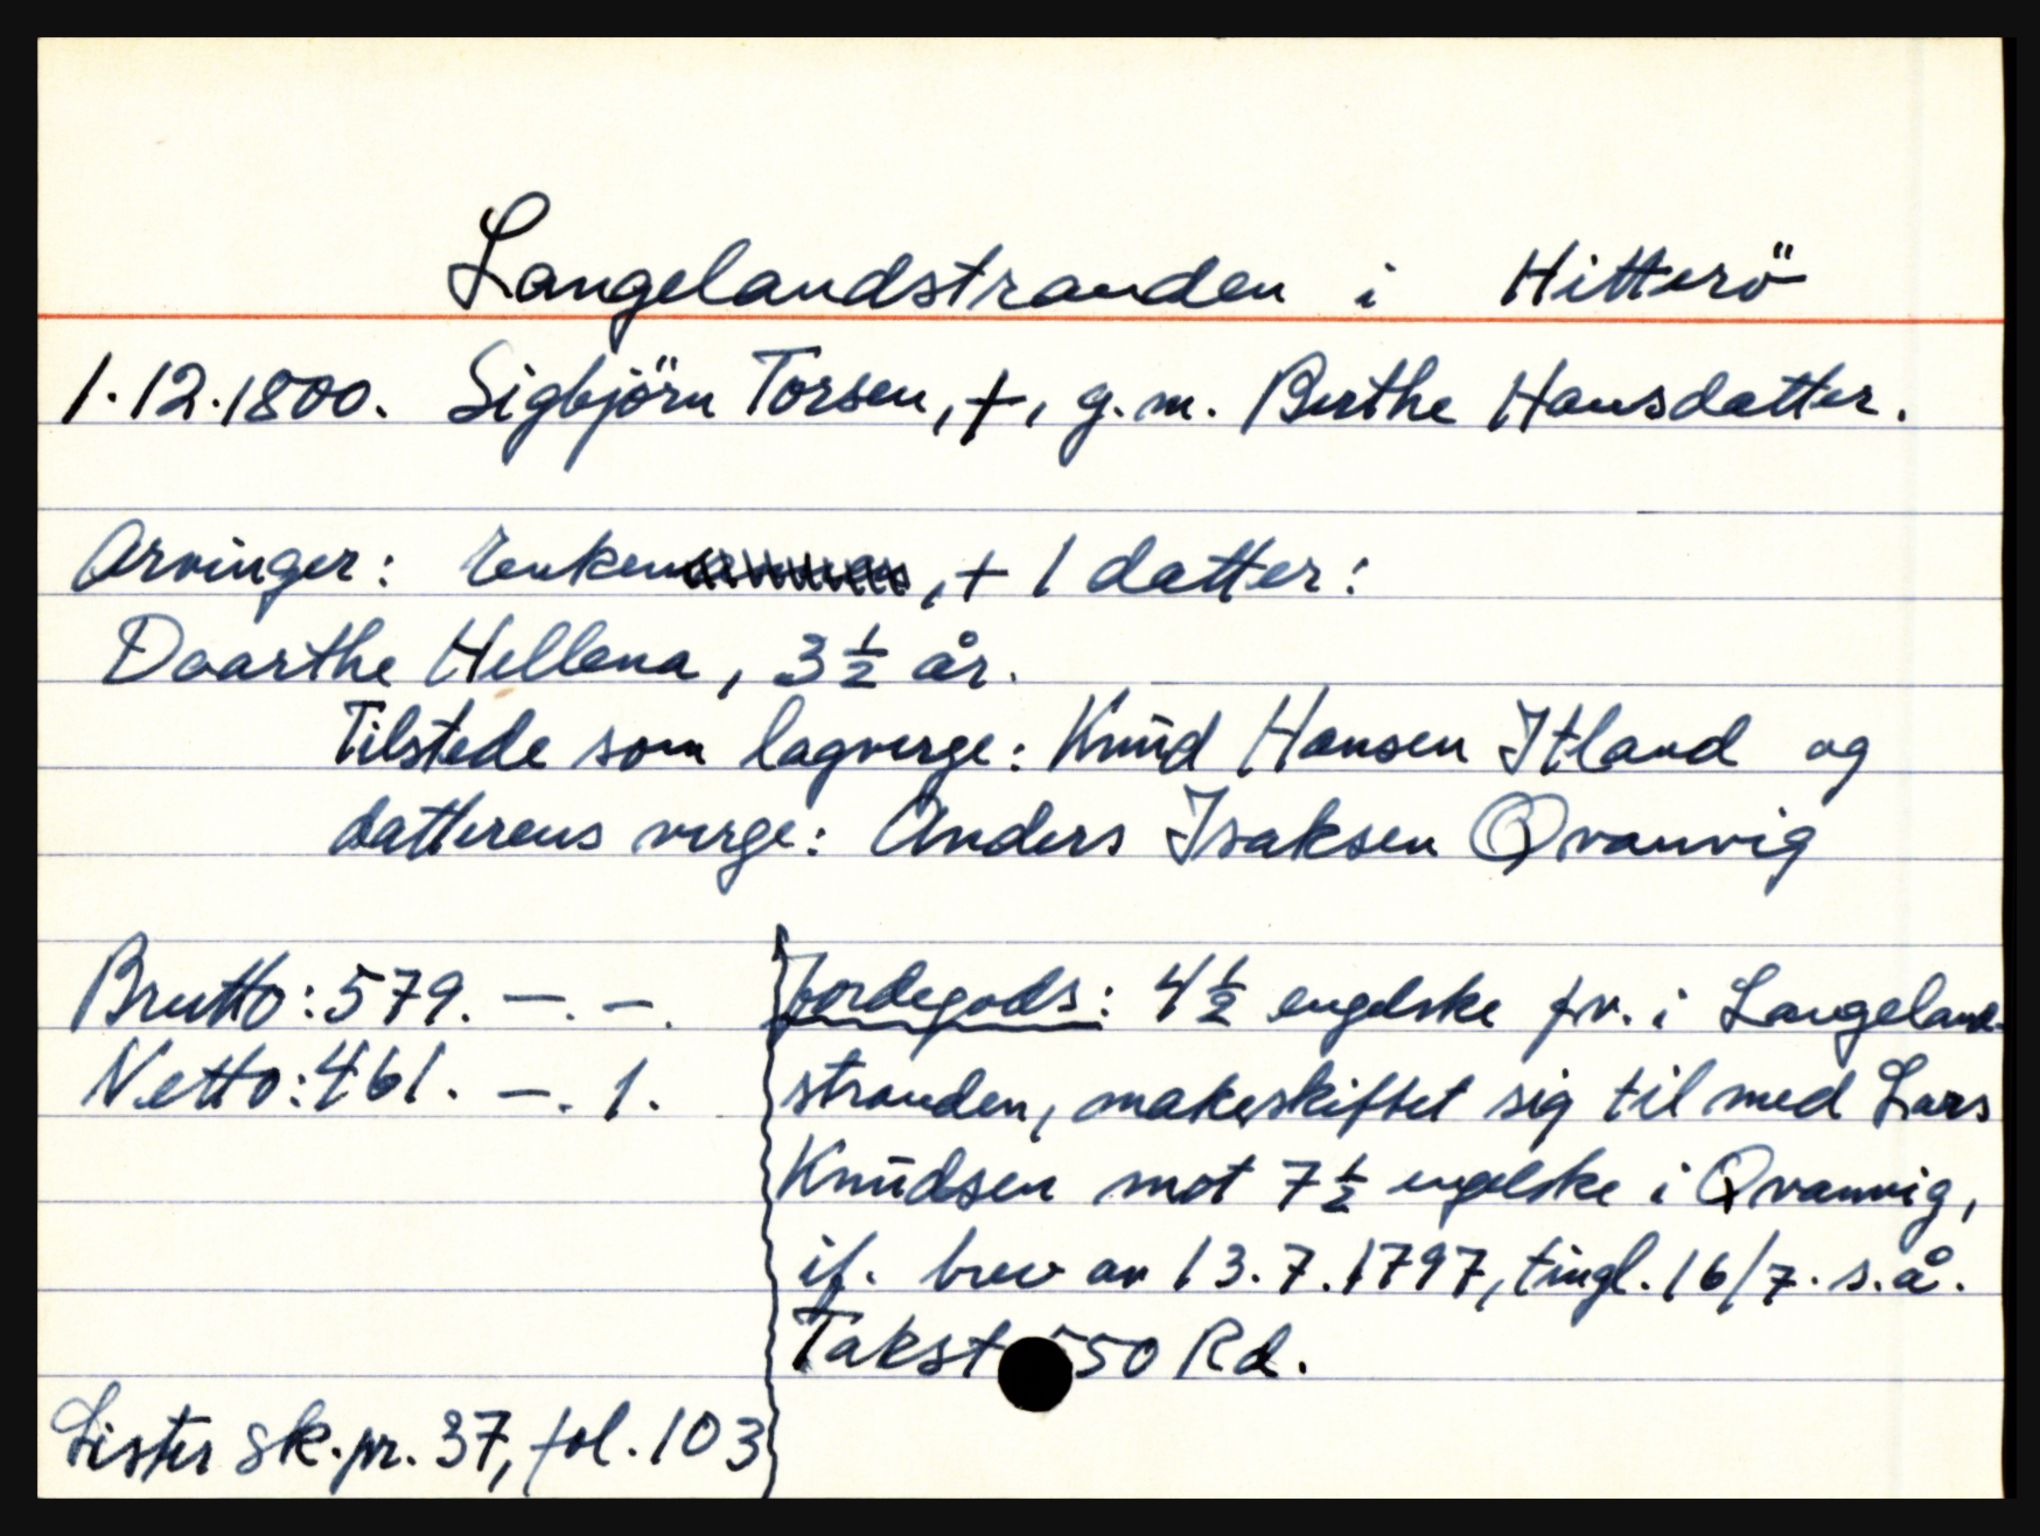 Langelandstranden i Hitterö
1.12.1800. Sigbjörn Torsen, +, g.m. Birthe Hansdatter.
Arvinger: Enken, + 1 datter:
Doarthe Hellena, 3 1/2 år.
Tilstede som lagverge: Knud Hansen Itland og
datterens verge: Anders Isaksen Qvanvig
Brutto: 579. —. —.
Netto: 461. —. 1.
Lister sk.pr. 37, fol. 103
Jordegods: 4 1/2 engelske pr. i Langeland-
stranden, makeskiftet sig til med Lars
Knudsen mot 7 1/2 engelske i Qvanvig,
if. brev av 13.7.1797, tingl. 16/7. s.å.
Takst 550 Rd.